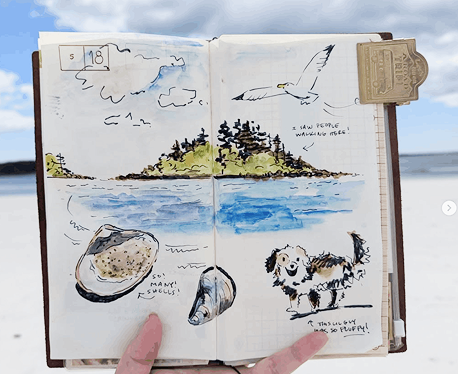 S 18
I SAW PEOPLE
WALKING HERE!
SO!
MANY!
SHELLS!
THIS LIL GUY
WAS SO FLUFFY!